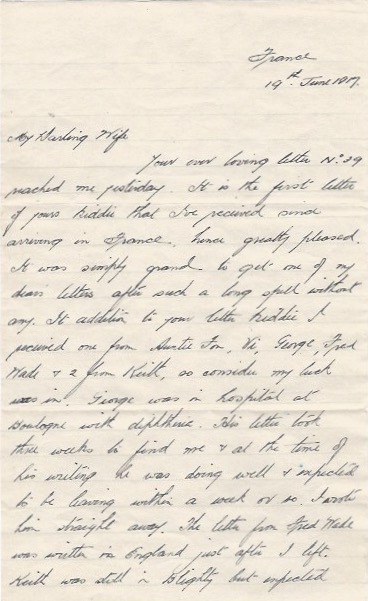 France
19th June 1917.
My Darling Wife
Your ever loving letter No. 39
reached me yesterday. It is the first letter
of yours Kiddie that I've received since
arriving in France, hence greatly pleased.
It was simply grand to get one of my
dears letters after such a long spell without
any. It addition to your letter Kiddie I
received one from Auntie Fon, Vi, George, Fred
Wade & 2 from Keith, so consider my luck
was in. George was in hospital at
Boulogne with diphtheria. His letter took
three weeks to find me & at the time of
his writing he was doing well & expected
to be leaving within a week or so. I wrote
him straight away. The letter from Fred Wade
was written in England just after I left.
Keith was still in Blighty but expected